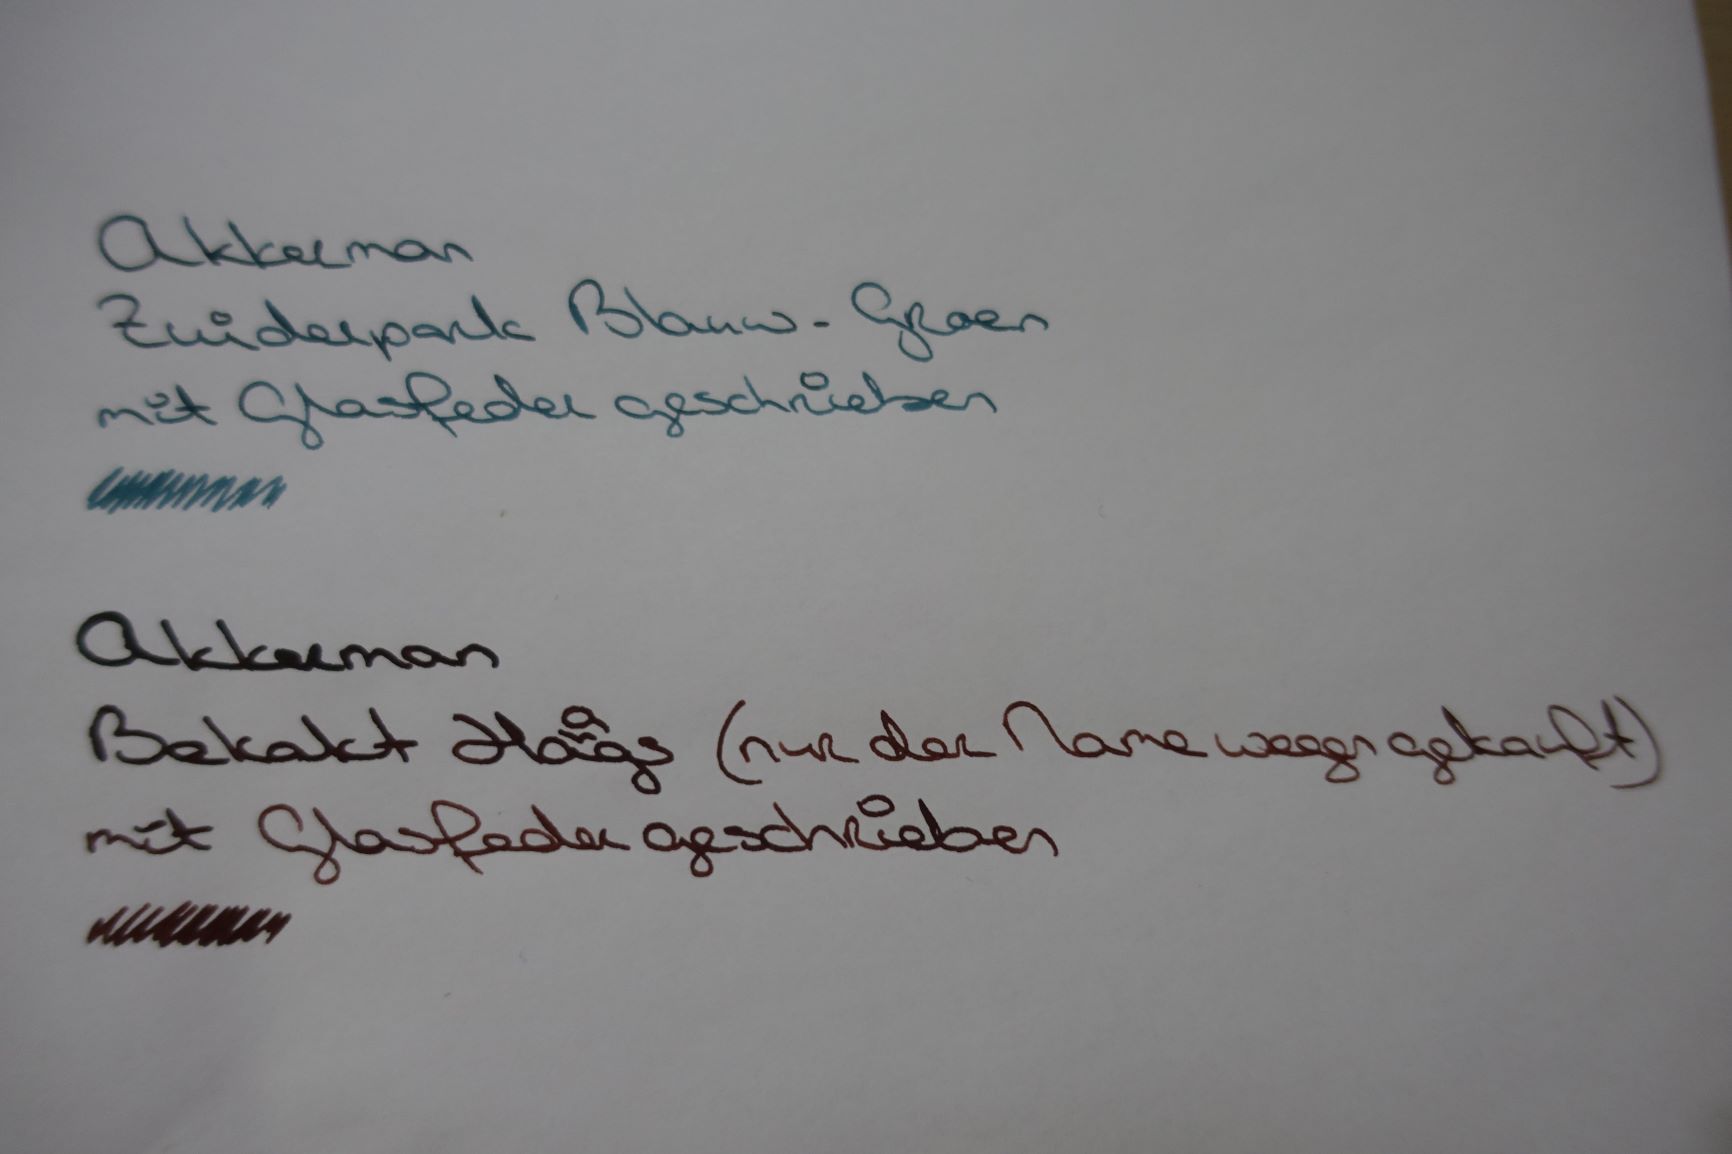 Akkerman
Zuiderpark Blauw-Groen
mit Glasfeder geschrieben
Akkerman
Bekakt Haags (nur der Name wegen gekauft)
mit Glasfeder geschrieben